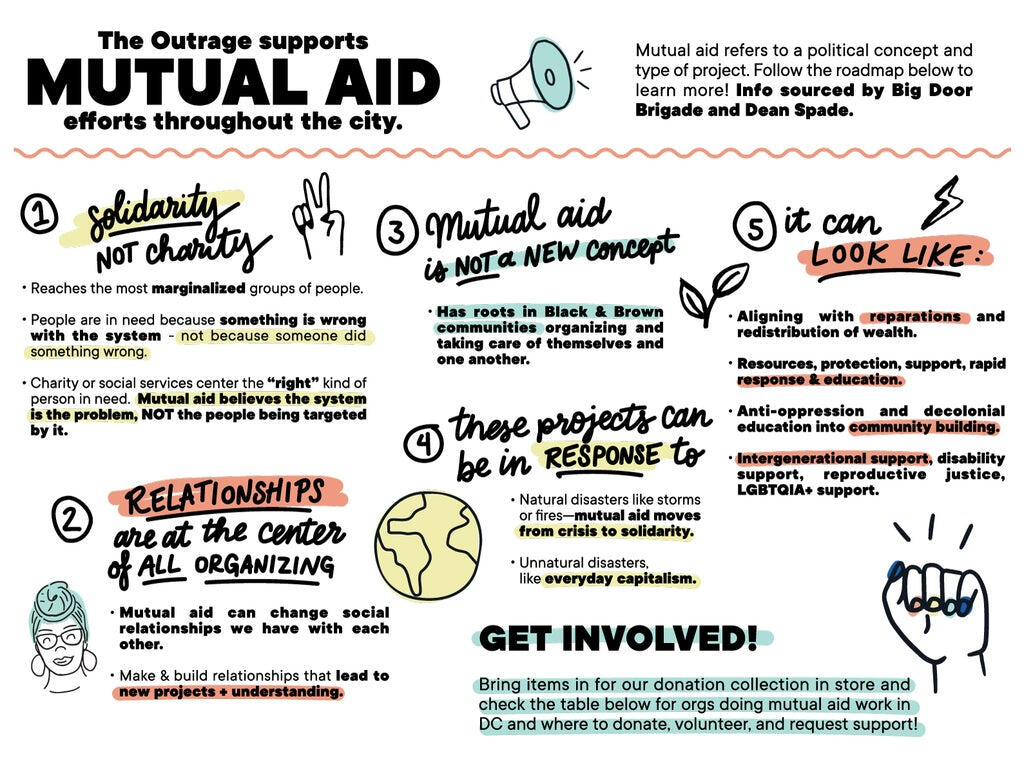 The Outrage supports
MUTUAL AID
efforts throughout the city.
Mutual aid refers to a political concept and
type of project. Follow the roadmap below to
learn more! Info sourced by Big Door
Brigade and Dean Spade.
1 solidarity
NOT charity
• Reaches the most marginalized groups of people.
• People are in need because something is wrong
with the system - not because someone did
something wrong.
• Charity or social services center the “right” kind of
person in need. Mutual aid believes the system
is the problem, NOT the people being targeted
by it.
2 RELATIONSHIPS
are at the center
of ALL ORGANIZING
• Mutual aid can change social
relationships we have with each
other.
• Make & build relationships that lead to
new projects + understanding.
3 Mutual aid
is NOT a NEW concept
• Has roots in Black & Brown
communities organizing and
taking care of themselves and
one another.
4 these projects can
be in RESPONSE to
• Natural disasters like storms
or fires—mutual aid moves
from crisis to solidarity.
• Unnatural disasters,
like everyday capitalism.
5 it can
LOOK LIKE:
• Aligning with reparations and
redistribution of wealth.
• Resources, protection, support, rapid
response & education.
• Anti-oppression and decolonial
education into community building.
• Intergenerational support, disability
support, reproductive justice,
LGBTQIA+ support.
GET INVOLVED!
Bring items in for our donation collection in store and
check the table below for orgs doing mutual aid work in
DC and where to donate, volunteer, and request support!